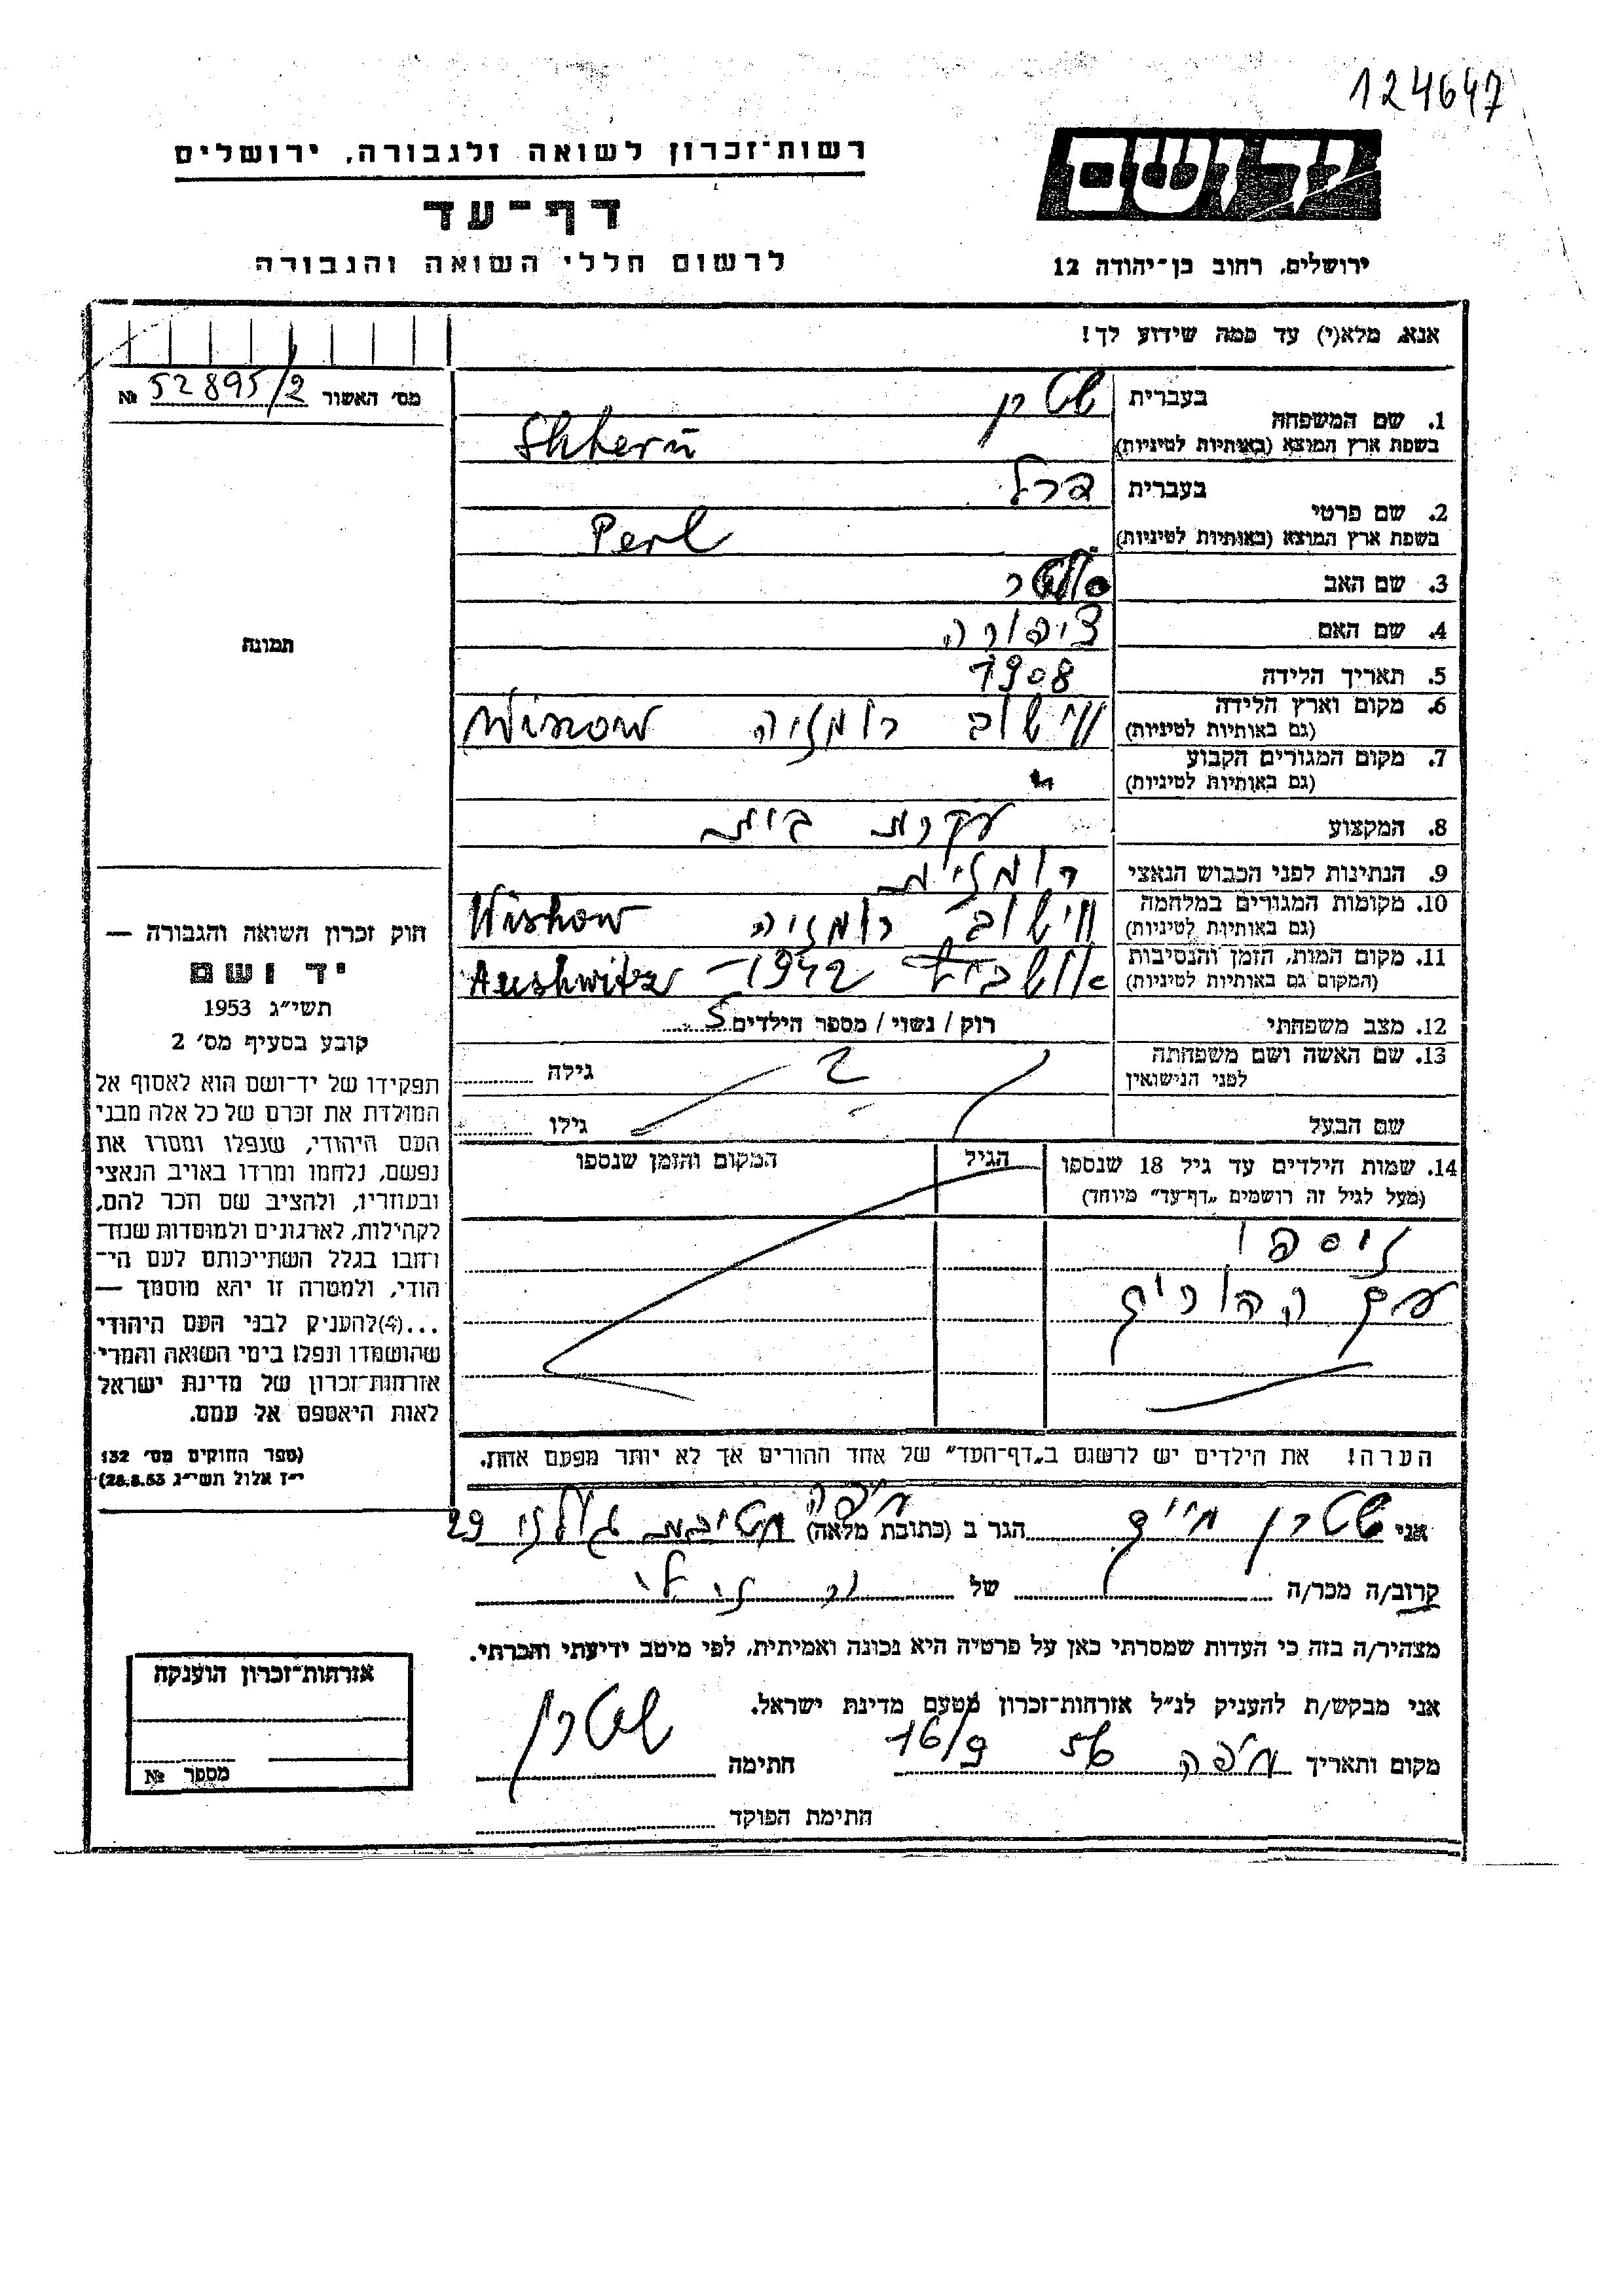 124647
רשות־זכרון לשואה ולגבורה, ירושלים
דף־עד
לרשום חללי השואה והגבורה
יד ושם
ירושלים, רחוב בן־יהודה 12
אנא, מלא(י) עד כמה שידוע לך!
מס׳ האשור 52895/2 №
1. שם המשפחה
בעברית שטרן
בשפת ארץ המוצא (באותיות לטיניות) Shtern
2. שם פרטי
בעברית פרל
בשפת ארץ המוצא (באותיות לטיניות) Perl
3. שם האב
4. שם האם ציפורה
5. תאריך הלידה 1908
6. מקום וארץ הלידה
(גם באותיות לטיניות) ווישוב רומניה Wisnow
7. מקום המגורים הקבוע
(גם באותיות לטיניות) "
8. המקצוע עקרת בית
9. הנתינות לפני הכבוש הנאצי רומנית
10. מקומות המגורים במלחמה
(גם באותיות לטיניות) ווישוב רומניה Wishow
11. מקום המות, הזמן והנסיבות
(המקום גם באותיות לטיניות) 1942 – Aushwitz
12. מצב משפחתי רוק / נשוי / מספר הילדים 5
13. שם האשה ושם משפחתה
לפני הנישואין
גילה
שם הבעל
גילו
14. שמות הילדים עד גיל 18 שנספו
(מעל לגיל זה רושמים „דף־עד" מיוחד)
הגיל
המקום והזמן שנספו
ניספו
עם ההורים
הערה! את הילדים יש לרשום ב„דף־העד" של אחד ההורים אך לא יותר מפעם אחת.
תמונה
חוק זכרון השואה והגבורה —
יד ושם
תשי״ג 1953
קובע בסעיף מס׳ 2
תפקידו של יד־ושם הוא לאסוף אל
המולדת את זכרם של כל אלה מבני
העם היהודי, שנפלו ומסרו את
נפשם, נלחמו ומרדו באויב הנאצי
ובעוזריו, ולהציב שם וזכר להם,
לקהילות, לארגונים ולמוסדות שנח־
רחבו בגלל השתייכותם לעם הי־
הודי, ולמטרה זו יהא מוסמך —
...(4)להעניק לבני העם היהודי
שהושמדו ונפלו בימי השואה והמרי
אזרחות־זכרון של מדינת ישראל
לאות היאספם אל עמם.
(ספר החוקים מס׳ 132
י״ז אלול תשי״ג 28.8.53)
אני שטרן חיים הגר ב (כתובת מלאה) חיפה 29
קרוב/ה מכר/ה של
מצהיר/ה בזה כי העדות שמסרתי כאן על פרטיה היא נכונה ואמיתית, לפי מיטב ידיעתי והכרתי.
אני מבקש/ת להעניק לנ״ל אזרחות־זכרון מטעם מדינת ישראל.
מקום ותאריך חיפה 56 16/9 חתימה שטרן
חתימת הפוקד
אזרחות־זכרון הוענקה
מספר №